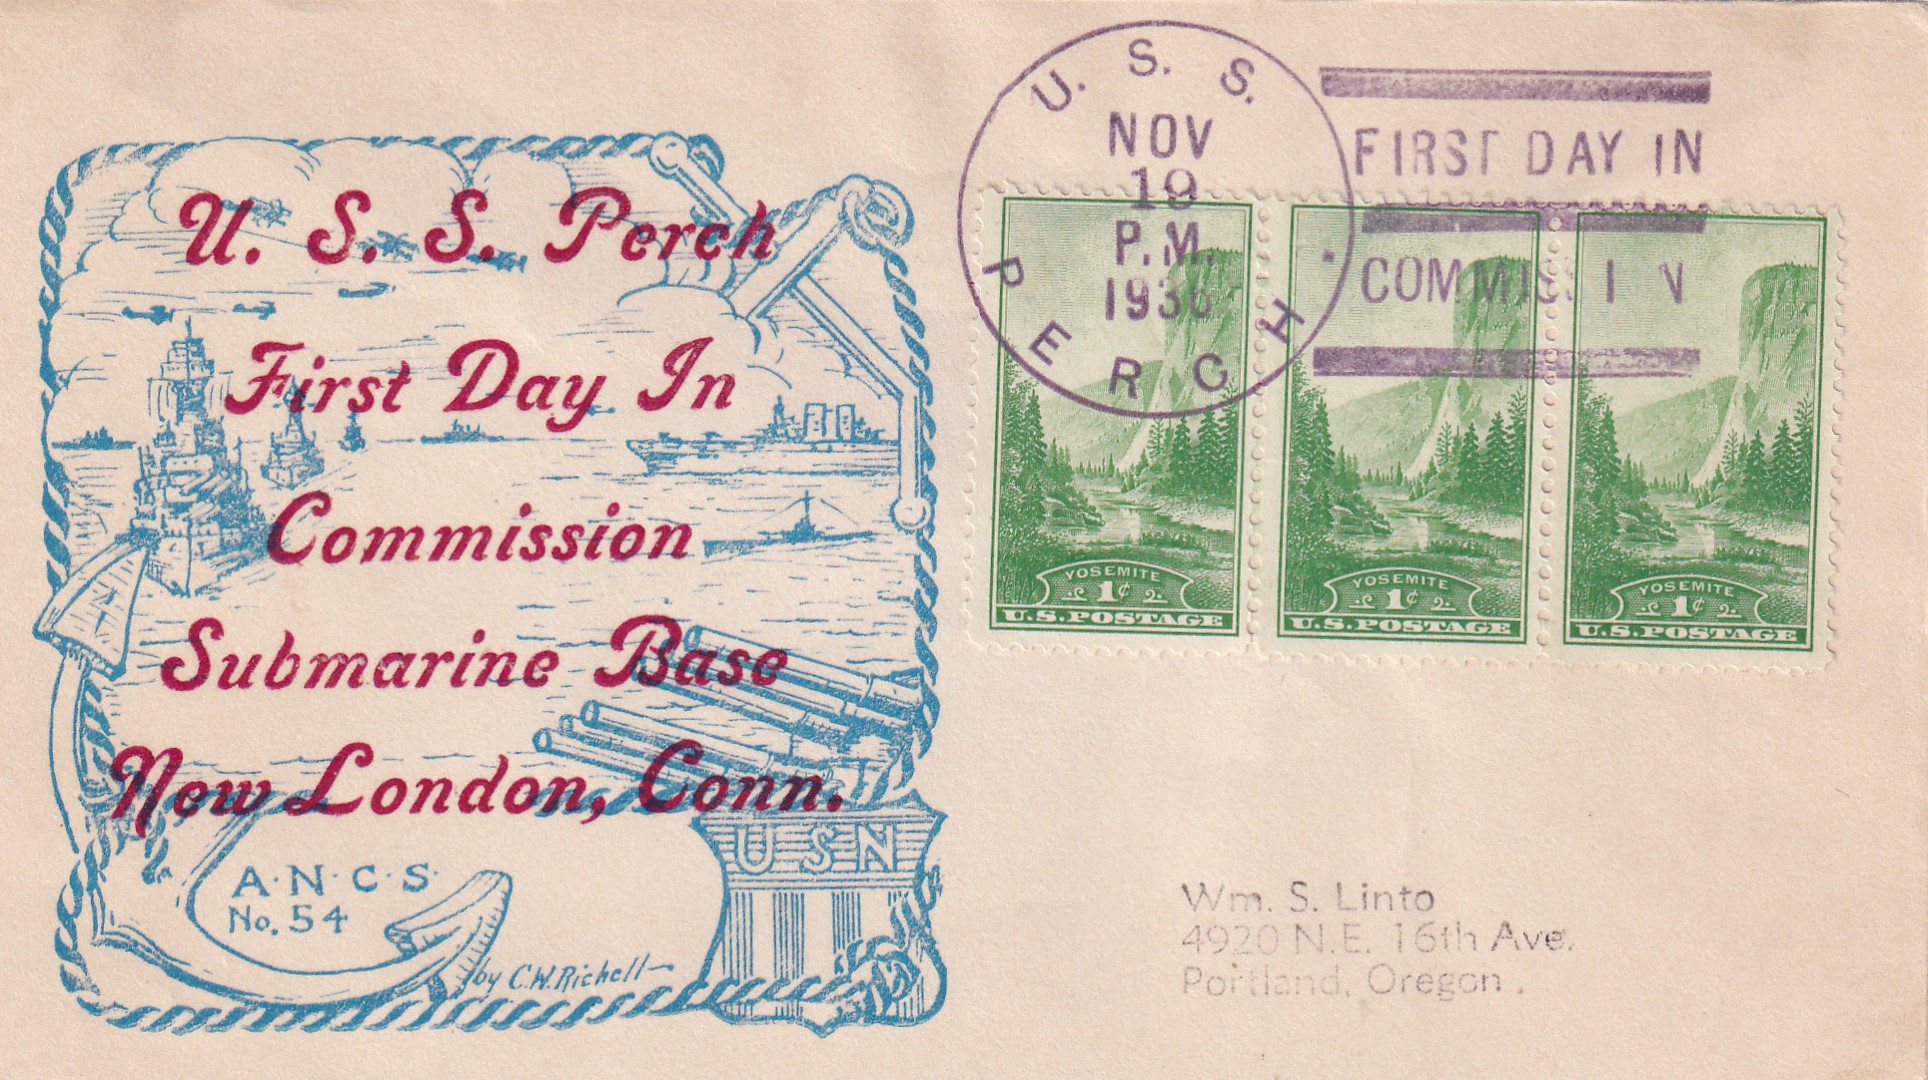 U. S. S. Perch
First Day In
Commission
Submarine Base
New London, Conn.
A·N·C·S·
No. 54
by C.W. Richell
USN
U. S. S.
PERCH
NOV
19
P.M.
1936
FIRST DAY IN
COMMIS I N
YOSEMITE
1¢
U.S.POSTAGE
YOSEMITE
1¢
U.S.POSTAGE
YOSEMITE
1¢
U.S.POSTAGE
Wm. S. Linto
4920 N.E. 16th Ave.
Portland, Oregon.